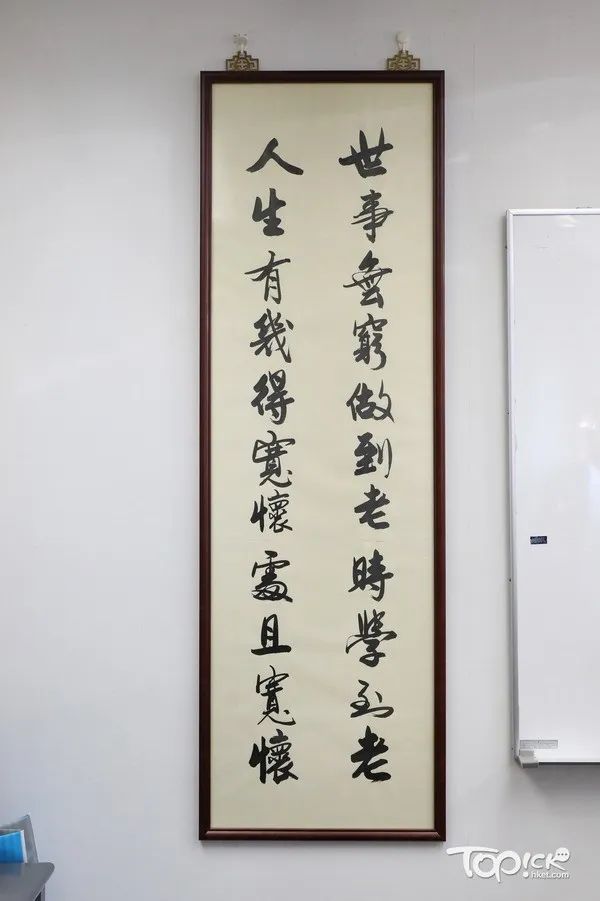 世事無窮做到老時學到老
人生有幾得寬懷處且寬懷
TOPiCK
hket.com